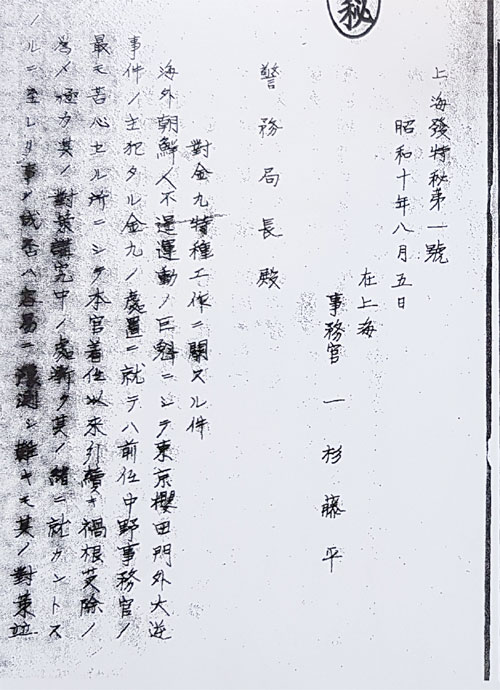 秘
上海發特秘第一號
昭和十年八月五日
在上海
事務官 一杉藤平
警務局長殿
對金九特種工作ニ關スル件
海外朝鮮人不逞運動ノ巨魁ニシテ東京櫻田門外大逆
事件ノ主犯タル金九ノ處置ニ就テハ前任中野事務官ノ
最モ苦心セル所ニシテ本官着任以来引續キ禍根芟除ノ
為メ極力其ノ對策講究中ノ處漸ク其ノ緒ニ就カントス
ルニ至レリ事ノ成否ハ容易ニ豫測シ難キモ其ノ對策竝